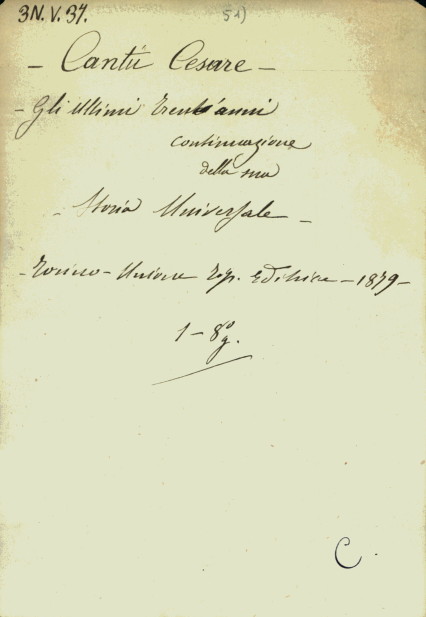 3N.V.37.
51)
- Cantù Cesare -
- Gli ultimi trent'anni
continuazione
della sua
- Storia Universale -
- Torino - Unione Tip. Editrice - 1879 -
1 - 8º g.
C.